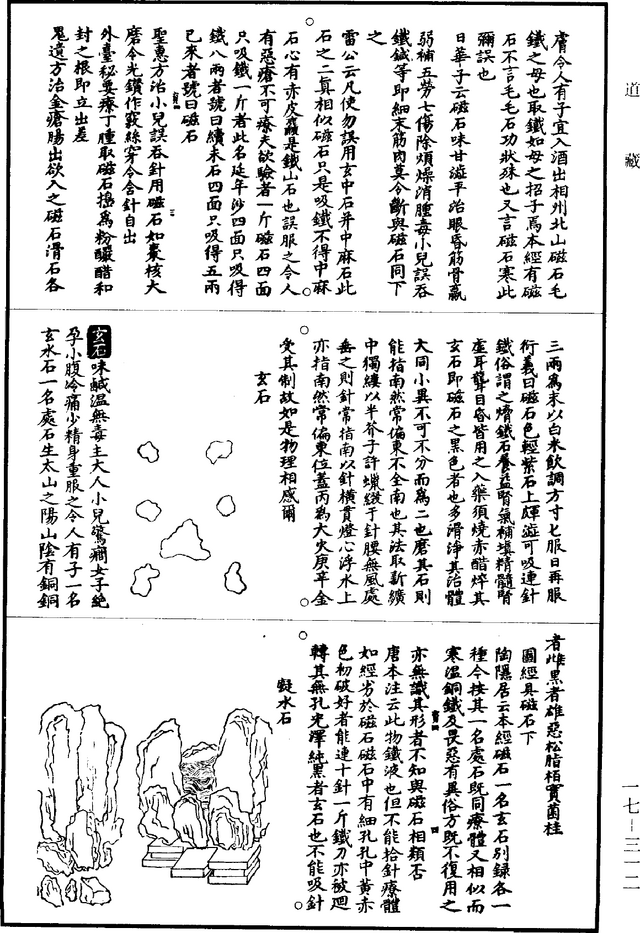 道藏
膚令人有子宜入酒出相州北山磁石毛
鐵之母也取鐵如母之招子焉本經有磁
石不言毛毛石功狀殊也又言磁石寒此
彌誤也
日華子云磁石味甘澁平治眼昏筋骨羸
弱補五勞七傷除煩燥消腫毒小兒誤吞
鐵鍼等即細末筋肉莫令斷與磁石同下
之
雷公云凡使勿誤用玄中石并中麻石此
石之二真相似磁石只是吸鐵不得中麻
石心有赤皮麤是鐵山石也誤服之令人
有惡瘡不可療夫欲驗者一斤磁石四面
只吸鐵一斤者此名延年沙四面只吸得
鐵八兩者號曰續未石四面只吸得五兩
已來者號曰磁石
聖惠方治小兒誤吞針用磁石如棗核大
磨令光鑽作竅絲穿令含針自出
外臺秘要療丁腫取磁石擣為粉釅醋和
封之根即立出差
鬼遺方治金瘡腸出欲入之磁石滑石各
三兩為末以白米飲調方寸匕服日再服
衍義曰磁石色輕紫石上皸澁可吸連針
鐵俗謂之熁鐵石養益腎氣補填精髓腎
虛耳聾目昏皆用之入藥須燒赤醋焠其
玄石即磁石之黑色者也多滑淨其治體
大同小異不可不分而為二也磨其石則
能指南然常偏東不全南也其法取新纊
中獨縷以半芥子許蠟綴于針腰無風處
垂之則針常指南以針橫貫燈心浮水上
亦指南然常偏東位蓋丙為大火庚辛金
受其制故如是物理相感爾
玄石
玄石味鹹溫無毒主大人小兒驚癎女子絕
孕小腹冷痛少精身重服之令人有子一名
玄水石一名處石生太山之陽山陰有銅銅
者雌黑者雄惡松脂栢實菌桂
圖經具磁石下
陶隱居云本經磁石一名玄石別錄各一
種今按其一名處石既同療體又相似而
寒溫銅鐵及畏惡有異俗方既不復用之
亦無識其形者不知與磁石相類否
唐本注云此物鐵液也但不能拾針療體
如經劣於磁石磁石中有細孔孔中黃赤
色初破好者能連十針一斤鐵刀亦被迴
轉其無孔光澤純黑者玄石也不能吸針
凝水石
一七－三一二